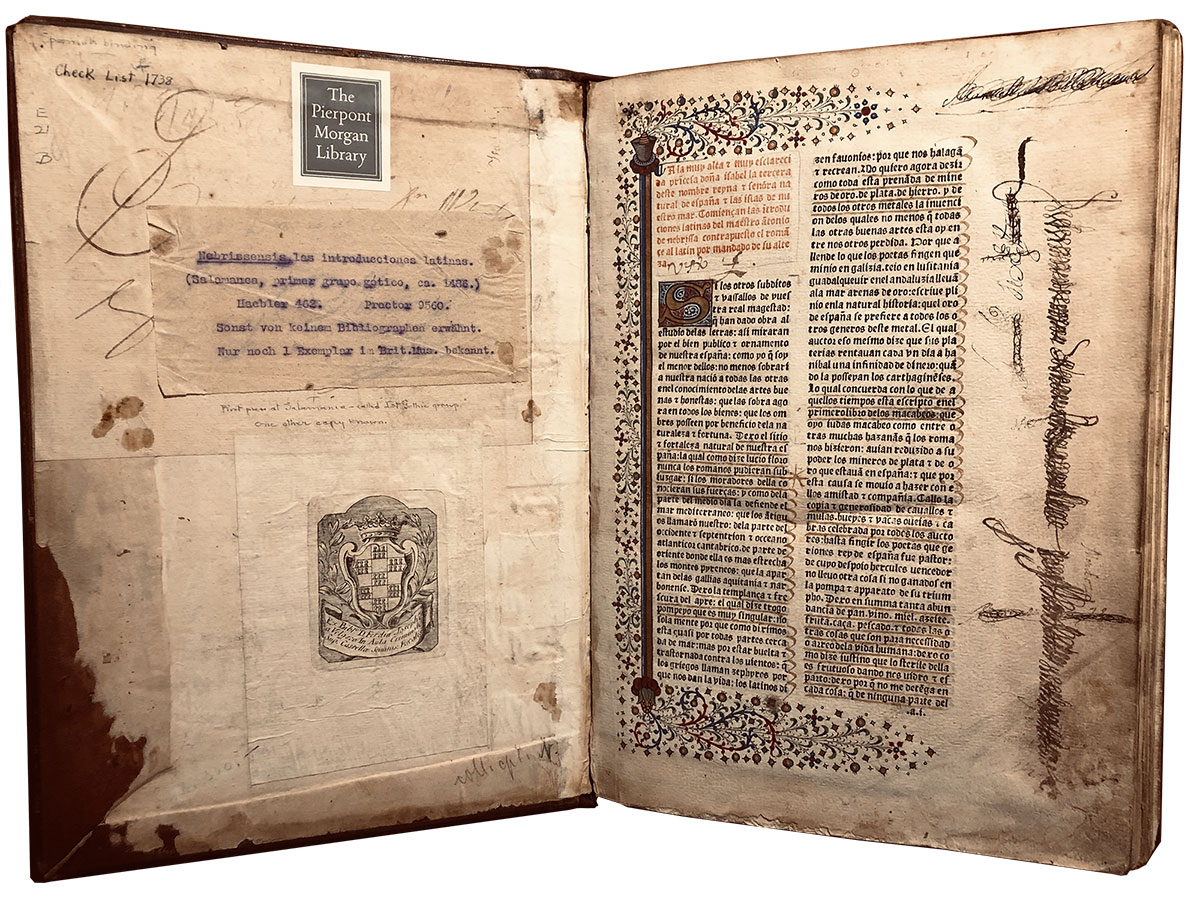 Check List 1738
E
21
D
The
Pierpont
Morgan
Library
Nebrissensis las introducciones latinas.
(Salamanca, primer grupo gótico, ca. 1488.)
Haebler 462. Proctor 9560.
Sonst von keinem Bibliographen erwähnt.
Nur noch 1 Exemplar im Brit.Mus. bekannt.
First press at Salamanca – called 1st gothic group.
One other copy known.
A la muy alta ⁊ muy esclareci
da princesa doña isabel la tercera
deste nombre reyna ⁊ señora na
tural de españa ⁊ las islas de nu
estro mar. Comiençan las ĩtrodu
ciones latinas del maestro ãtonio
de nebrissa contrapuesto el romã
ce al latin por mandado de su alte
za.
SI los otros subditos
⁊ vassallos de vues
tra real magestad:
q̃ han dado obra al
estudio delas letras: assi miraran
por el bien publico ⁊ ornamento
de nuestra españa: como yo q̃ soy
el menor dellos: no menos sobrari
a nuestra nació a todas las otras
enel conocimiento delas artes bue
nas ⁊ honestas: que las sobra ago
ra en todos los bienes: que los om
bres posseen por beneficio dela na
turaleza ⁊ fortuna. Dexo el sitio
⁊ fortaleza natural de nuestra es
paña: la qual como dize lucio floro
nunca los romanos pudieran sub
iuzgar: si los moradores della co
nocieran sus fuercas: ⁊ como dela
parte del medio dia la defiende el
mar mediterraneo: que los ãtigu
os llamarõ nuestro: dela parte del
occidente ⁊ septentrion ⁊ occeano
atlantico ⁊ cantabrico. de parte de
oriente donde ella es mas estrecha
los montes pyreneos: que la apar
tan delas gallias aquitania ⁊ nar
bonense. Dexo la templança ⁊ fre
scura del ayre: el qual dize trogo
pompeyo que es muy singular: no
sola mente por que como diximos
esta quasi por todas partes cerca
da de mar: mas por estar buelta ⁊
trastornada contra los vientos: q̃
los griegos llaman zephyros por
que nos dan la vida: los latinos di
zen fauonios: por que nos halagã
⁊ recrean. No quiero agora dezir
como toda esta preñada de mine
ros de oro. de plata. de hierro. ⁊ de
todos los otros metales la inuenci
on delos quales no menos q̃ todas
las otras buenas artes esta oy en
tre nos otros perdida. Por que a
llende lo que los poetas fingen que
minio en galizia. teio en lusitania
guadalqueuir enel andaluzia lleuã
ala mar arenas de oro: escriue pli
nio enla natural historia: quel oro
de españa se prefiere a todos los o
tros generos deste metal. El qual
auctor eso mesmo dize que sus pla
terias rentauan cada vn dia a ha
nibal vna infinidad de dinero: quã
do la possepan los carthaginẽses.
lo qual concuerda con lo que de a
quellos tiempos esta escripto enel
primero libio delos macabeos: que
oyo iudas macabeo como entre o
tras muchas hazanãs q̃ los roma
nos hizieron: auian reduzido a su
poder los mineros de plata ⁊ de o
ro que estauã en españa: ⁊ que por
esta causa se mouio a hazer con e
llos amistad ⁊ compañia. Callo la
copia ⁊ generosidad de cauallos ⁊
mulas. bueyes ⁊ vacas oueias. ⁊ ca
bras celebrada por todos los aucto
res: hasta fingir los poetas que ge
riones rey de españa fue pastor:
de cuyo despoio hercules vencedor
no lleuo otra cosa si no ganados en
la pompa ⁊ apparato de su trium
pho. Dexo en summa tanta abun
dancia de pan. vino. miel. azeite.
fruta. caça. pescado. ⁊ todas las o
tras cosas que son para necessidad
o arreo dela vida humana: dexo co
mo dize iustino que lo sterile della
es frutuoso dando nos vidro ⁊ es
parto: dexo por q̃ no me detẽga en
cada cosa: q̃ de ninguna parte del
.a.i.